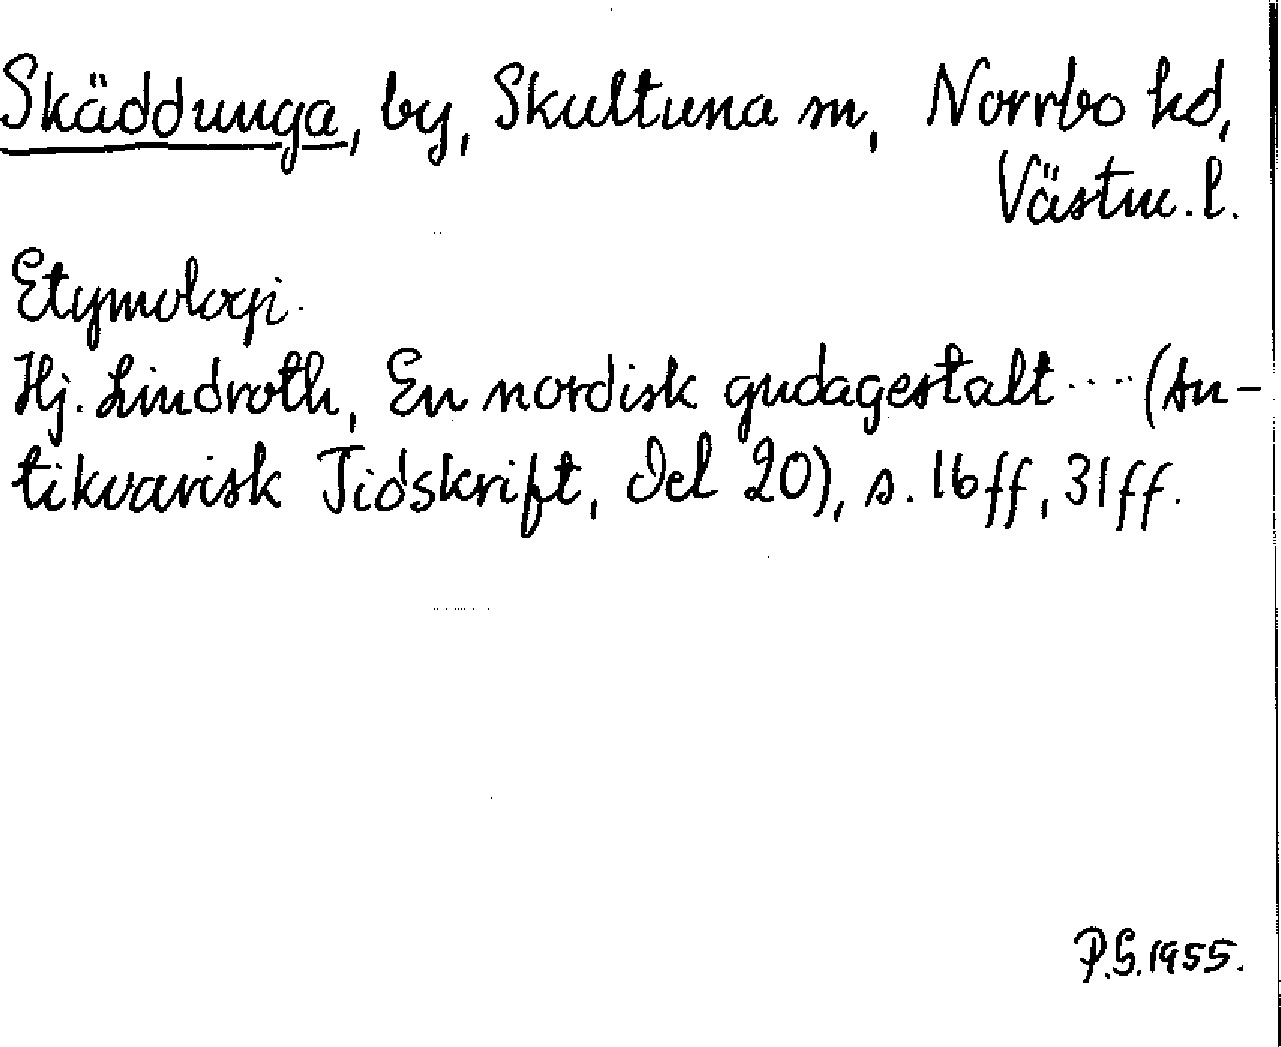 Skäddunga, by, Skultuna sn, Norrbo hd,
Västm. l.
Etymologi.
Hj. Lindroth, En nordisk gudagestalt .... (An-
tikvarisk Tidskrift, Del 20), s. 16 ff, 31 ff.
P.G. 1955.